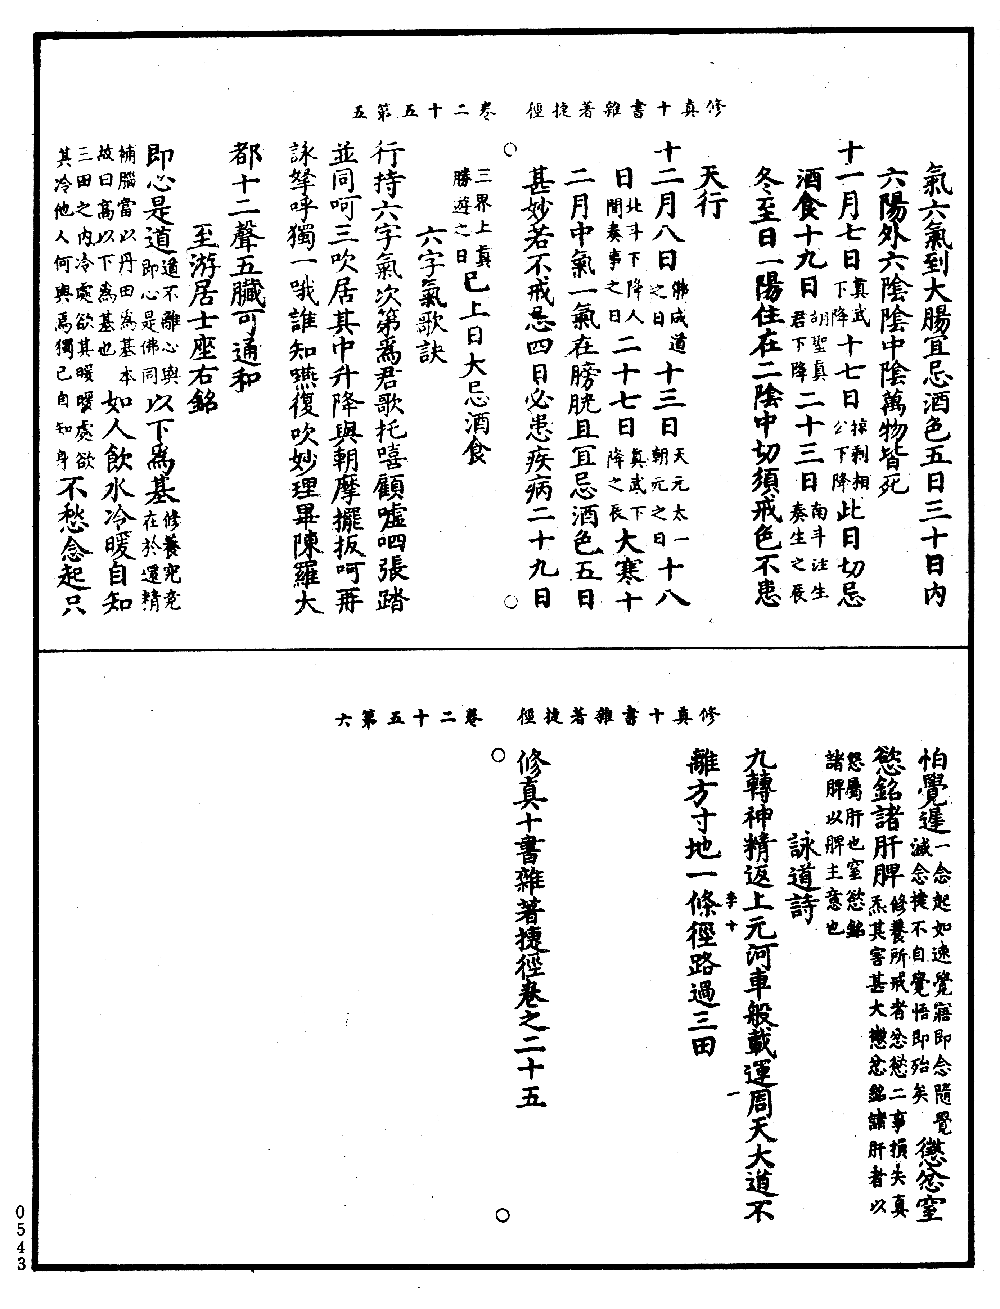 修真十書雜著捷徑　卷二十五第五
氣六氣到大腸宜忌酒色五日三十日內
六陽外六陰陰中陰萬物皆死
十一月七日真武下降十七日掉剩相公下降此日切忌
酒食十九日胡聖真君下降二十三日南斗注生奏生之辰
冬至日一陽住在二陰中切須戒色不患
天行
十二月八日佛成道之日十三日天元太一朝元之日十八
日北斗下降人間奏事之日二十七日真武下降之辰大寒十
二月中氣一氣在膀胱且宜忌酒色五日
甚妙若不戒忌四日必患疾病二十九日
三界上真勝遊之日已上日大忌酒食
六字氣歌訣
行持六字氣次第為君歌托嘻顧噓呬張踏
並同呵三吹居其中升降與朝摩擺扳呵再
詠拏呼獨一哦誰知嚥復吹妙理畢陳羅大
都十二聲五臟可通和
至游居士座右銘
即心是道道不離心與即心是佛同以下為基修養究竟在於運精
補腦當以丹田為基本故曰高以下為基也如人飲水冷暖自知
三田之內冷處欲其暖暖處欲其冷他人何與焉獨己自知身不愁念起只
修真十書雜著捷徑　卷二十五第六
怕覺遲一念起如速覺寤即念隨覺滅念捷不自覺悟即殆矣懲忿窒
慾銘諸肝脾修養所戒者忿慾二事損失真炁其害甚大懲忿銘諸肝者以
怒屬肝也窒慾銘諸脾以脾主意也
詠道詩
李十一
九轉神精返上元河車般載運周天大道不
離方寸地一條徑路過三田
修真十書雜著捷徑卷之二十五
0543